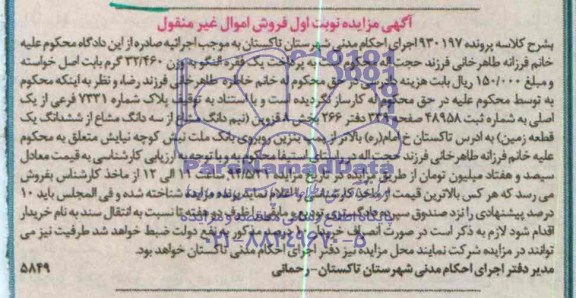 آگهی مزایده نوبت اول فروش اموال غیر منقول
بشرح کلاسه پرونده ۹۳۰۱۹۷ اجرای احکام مدنی شهرستان تاکستان به موجب اجرائیه صادره از این دادگاه محکوم علیه
خانم فرزانه طاهرخانی فرزند حجت اله محکوم است به پرداخت یک فقره النگو به وزن ۳۲/۴۶۰ گرم بابت اصل خواسته
و مبلغ ۱۵۰/۰۰۰ ریال بابت هزینه دادرسی در حق محکوم له خانم خاطره طاهرخانی فرزند رضا، و نظر به اینکه محکوم
به توسط محکوم علیه در حق محکوم له کارساز نگردیده است و با استناد به توقیف پلاک شماره ۷۳۳۱ فرعی از یک
اصلی به شماره ثبت ۴۸۹۵۸ صفحه ۳۳۹ دفتر ۲۶۶ بخش ۸ قزوین (نیم دانگ مشاع از سه دانگ مشاع از ششدانگ یک
قطعه زمین) به ادرس تاکستان خ امام(ره) بالاتر از پمپ بنزین روبروی بانک ملت نبش کوچه نیایش متعلق به محکوم
علیه خانم فرزانه طاهرخانی فرزند حجت اله در راستای استیفا محکوم به و با توجه به ارزیابی کارشناسی به قیمت معادل
سیصد و هفتاد میلیون تومان از طریق مزایده در تاریخ ساعت ۱۱ الی ۱۲ از ماخذ کارشناس بفروش
می رسد که هر کس بالاترین قیمت از ماخذ کارشناسی را اعلام نماید برنده مزایده شناخته شده و فی المجلس باید ۱۰
درصد پیشنهادی را نزد صندوق سپرده دادگستری تودیع و مابقی را ظرف تا نسبت به انتقال سند به نام خریدار
اقدام شود لازم به ذکر است در صورت انصراف خریدار ۱۰ درصد مذکور به نفع دولت ضبط خواهد شد ظرفیت نیز می
توانند در مزایده شرکت نمایند محل مزایده نیز دفتر اجرای احکام مدنی تاکستان خواهد بود.
مدیر دفتر اجرای احکام مدنی شهرستان تاکستان-رحمانی ۵۸۴۹
ParsNamadData
۰۲۱-۸۸۳۴۹۶۷۰-۵